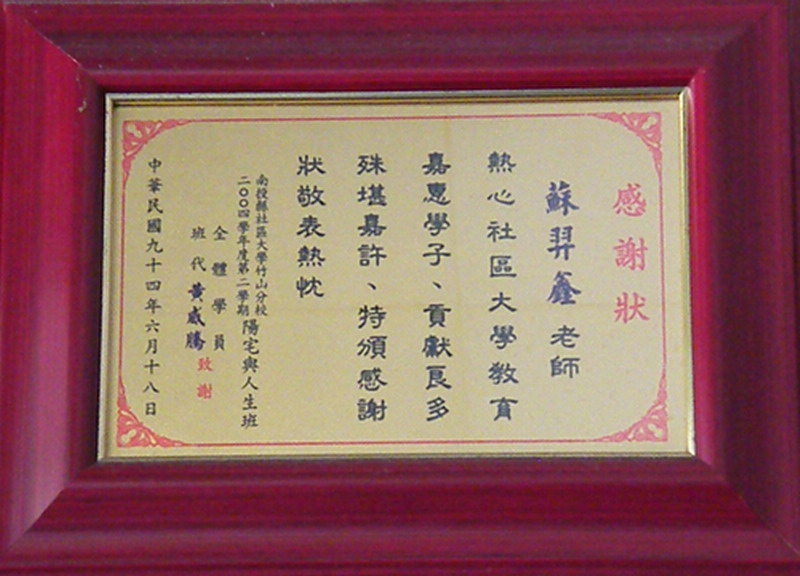 感謝狀
蘇羿鑫老師
熱心社區大學教育
嘉惠學子、貢獻良多
殊堪嘉許、特頒感謝
狀敬表熱忱
南投縣社區大學竹山分校
二〇〇四學年度第二學期
陽宅與人生班
全體學員
班代黃威騰致謝
中華民國九十四年六月十八日